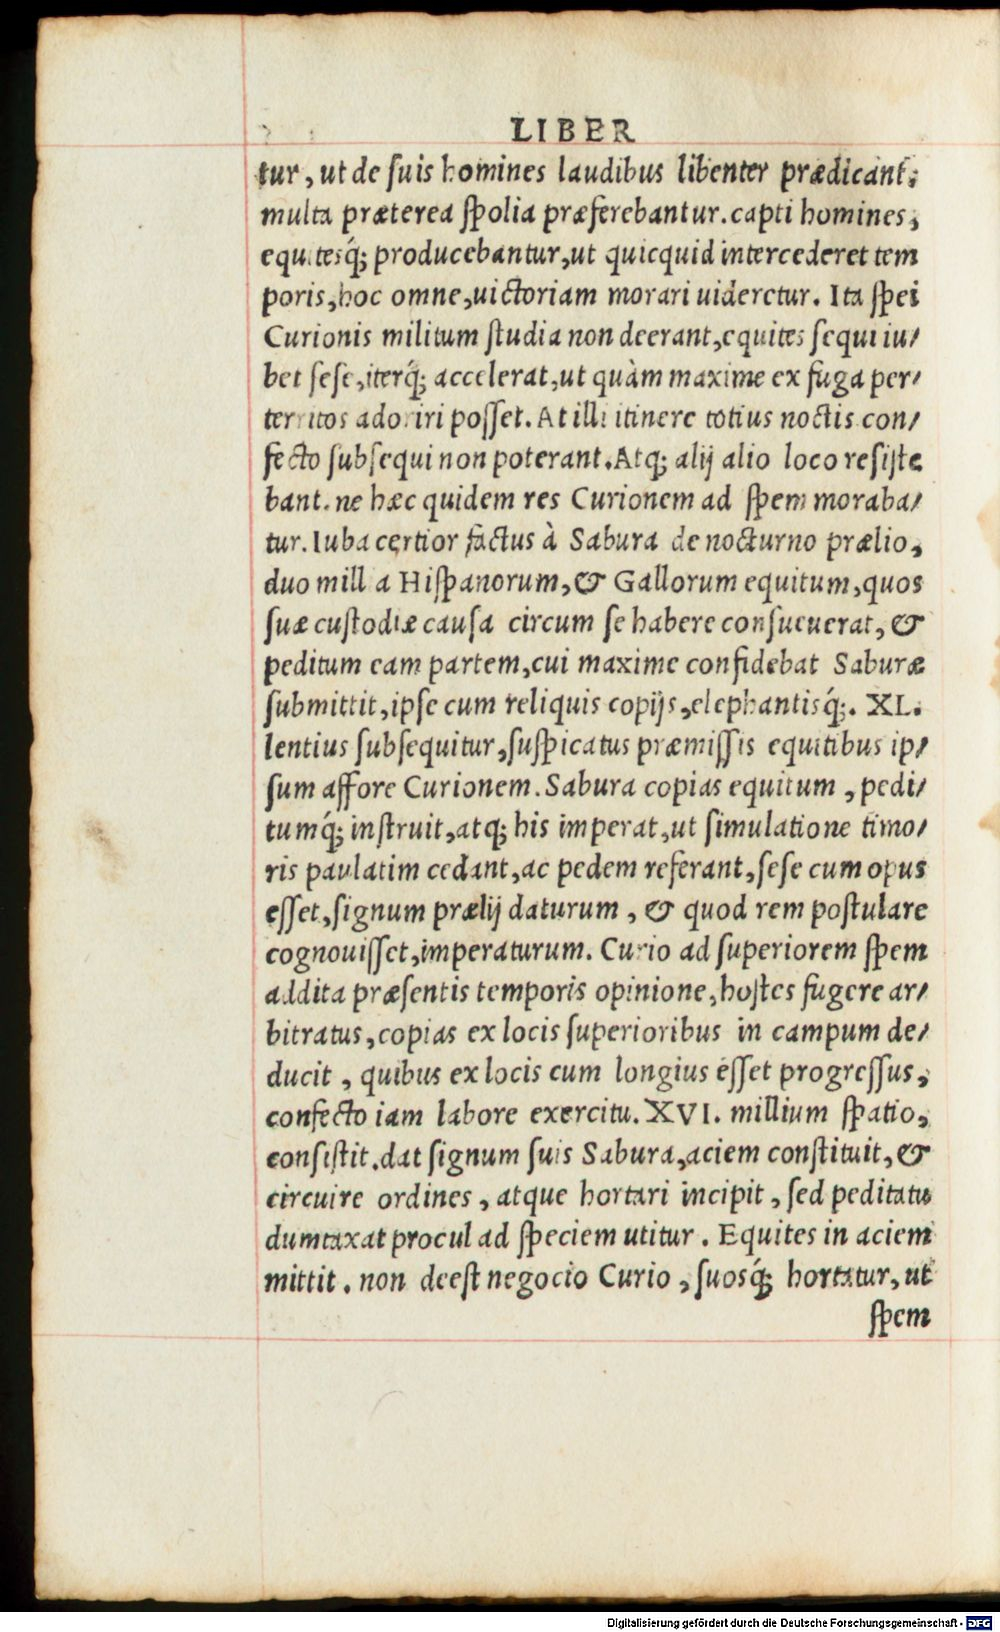 LIBER
tur, ut de ſuis homines laudibus libenter prædicant;
multa præterea ſpolia præferebantur. capti homines,
equitesq́; producebantur, ut quicquid intercederet tem
poris, hoc omne, uictoriam morari uideretur. Ita ſpei
Curionis militum ſtudia non deerant, equites ſequi iu/
bet ſeſe, iterq́; accelerat, ut quàm maxime ex fuga per/
territos adoriri poſſet. At illi itinere totius noctis con/
fecto ſubſequi non poterant. Atq; alij alio loco reſiſte
bant. ne hæc quidem res Curionem ad ſpem moraba/
tur. Iuba certior factus à Sabura de nocturno prælio,
duo mill a Hiſpanorum, & Gallorum equitum, quos
ſuæ cuſtodiæ cauſa circum ſe habere conſueuerat, &
peditum eam partem, cui maxime confidebat Saburæ
ſubmittit, ipſe cum reliquis copijs, elephantisq́;. XL.
lentius ſubſequitur, ſuſpicatus præmiſſis equitibus ip/
ſum affore Curionem. Sabura copias equitum, pedi/
tumq́; inſtruit, atq; his imperat, ut ſimulatione timo/
ris paulatim cedant, ac pedem referant, ſeſe cum opus
eſſet, ſignum prælij daturum, & quod rem poſtulare
cognouiſſet, imperaturum. Curio ad ſuperiorem ſpem
addita præſentis temporis opinione, hoſtes fugere ar/
bitratus, copias ex locis ſuperioribus in campum de/
ducit, quibus ex locis cum longius eſſet progreſſus,
confecto iam labore exercitu. XVI. millium ſpatio,
conſiſtit. dat ſignum ſuis Sabura, aciem conſtituit, &
circuire ordines, atque hortari incipit, ſed peditatu
dumtaxat procul ad ſpeciem utitur. Equites in aciem
mittit. non deeſt negocio Curio, ſuosq́; hortatur, ut
ſpem
Digitalisierung gefördert durch die Deutsche Forschungsgemeinschaft - DFG